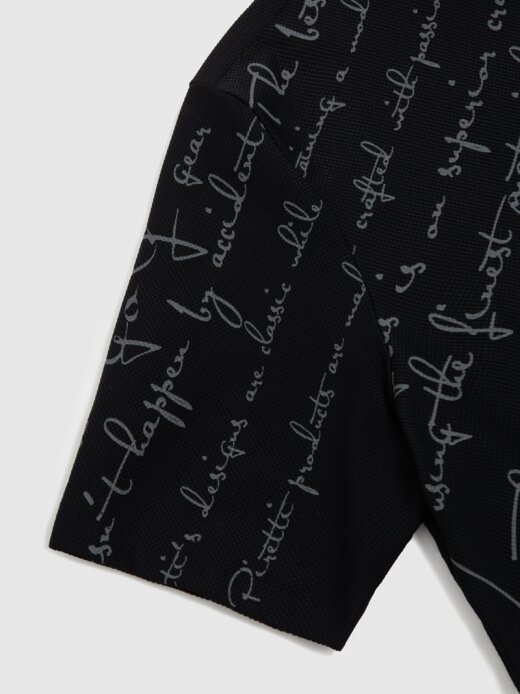 gear
sn't happen by accident. The best
te's designs are classic while
aining a mod
Piretti products are mad
crafted with passio
is an superior cra
using the finest